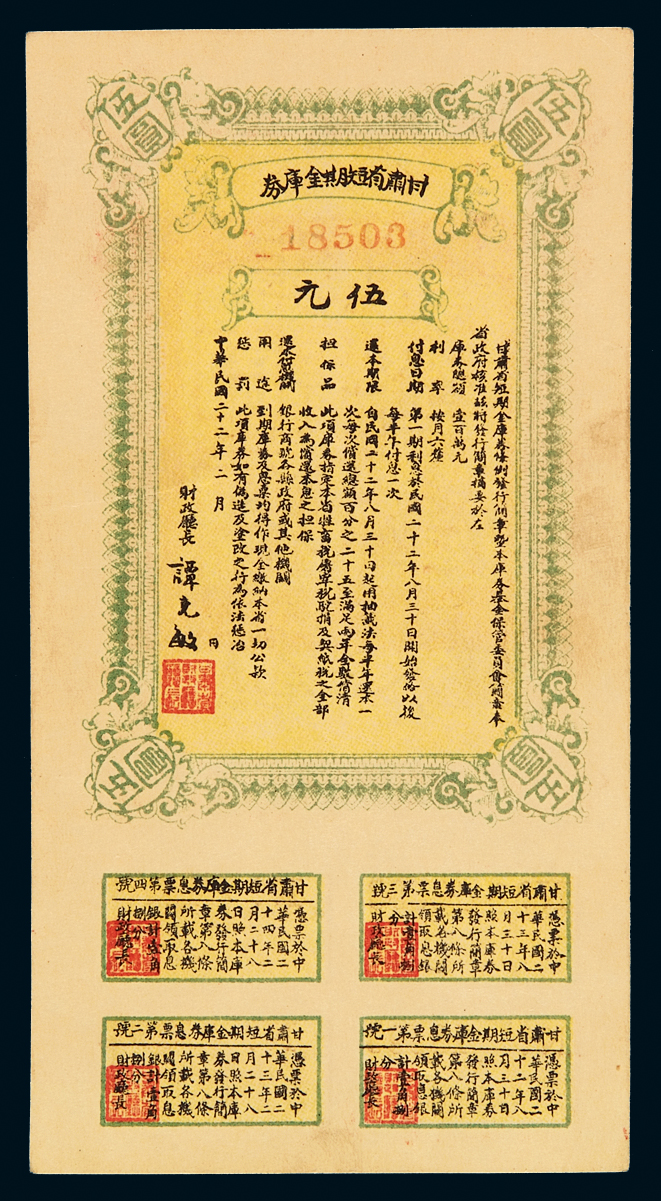 伍圓
伍圓
甘肅省短期金庫券
18503
伍元
甘肅省短期金庫券條例發行簡章暨本庫券基金保管委員會簡章奉
省政府核准茲將發行簡章摘要於左
庫券總額 壹百萬元
利率 按月六釐
付息日期 第一期利息於民國二十二年八月三十日開始發給以後
每半年付息一次
還本期限 自民國二十二年八月三十日起用抽籤法每半年還本一
次每次償還總額百分之二十五至滿足兩年全數償清
担保品 此項庫券指定本省牲畜稅屠宰稅駝捐及契紙稅之全部
收入為償還本息之担保
還本付息機關 銀行商號各縣政府或其他機關
用途 到期庫券及息票均得作現金繳納本省一切公款
懲罰 此項庫券如有偽造及塗改之行為依法懲治
中華民國二十二年二月 日
財政廳長 譚克敏
伍圓
伍圓
甘肅省短期金庫券息票第三號
憑票於中
華民國二
十三年八
月三十日
照本庫券
發行簡章
第八條所
載各機關
領取息銀
計壹角捌
分
財政廳長
甘肅省短期金庫券息票第四號
憑票於中
華民國二
十四年二
月二十八
日照本庫
券發行簡
章第八條
所載各機
關領取息
銀計壹角
捌分
財政廳長
甘肅省短期金庫券息票第一號
憑票於中
華民國二
十二年八
月三十日
照本庫券
發行簡章
第八條所
載各機關
領取息銀
計壹角捌
分
財政廳長
甘肅省短期金庫券息票第二號
憑票於中
華民國二
十三年二
月二十八
日照本庫
券發行簡
章第八條
所載各機
關領取息
銀計壹角
捌分
財政廳長